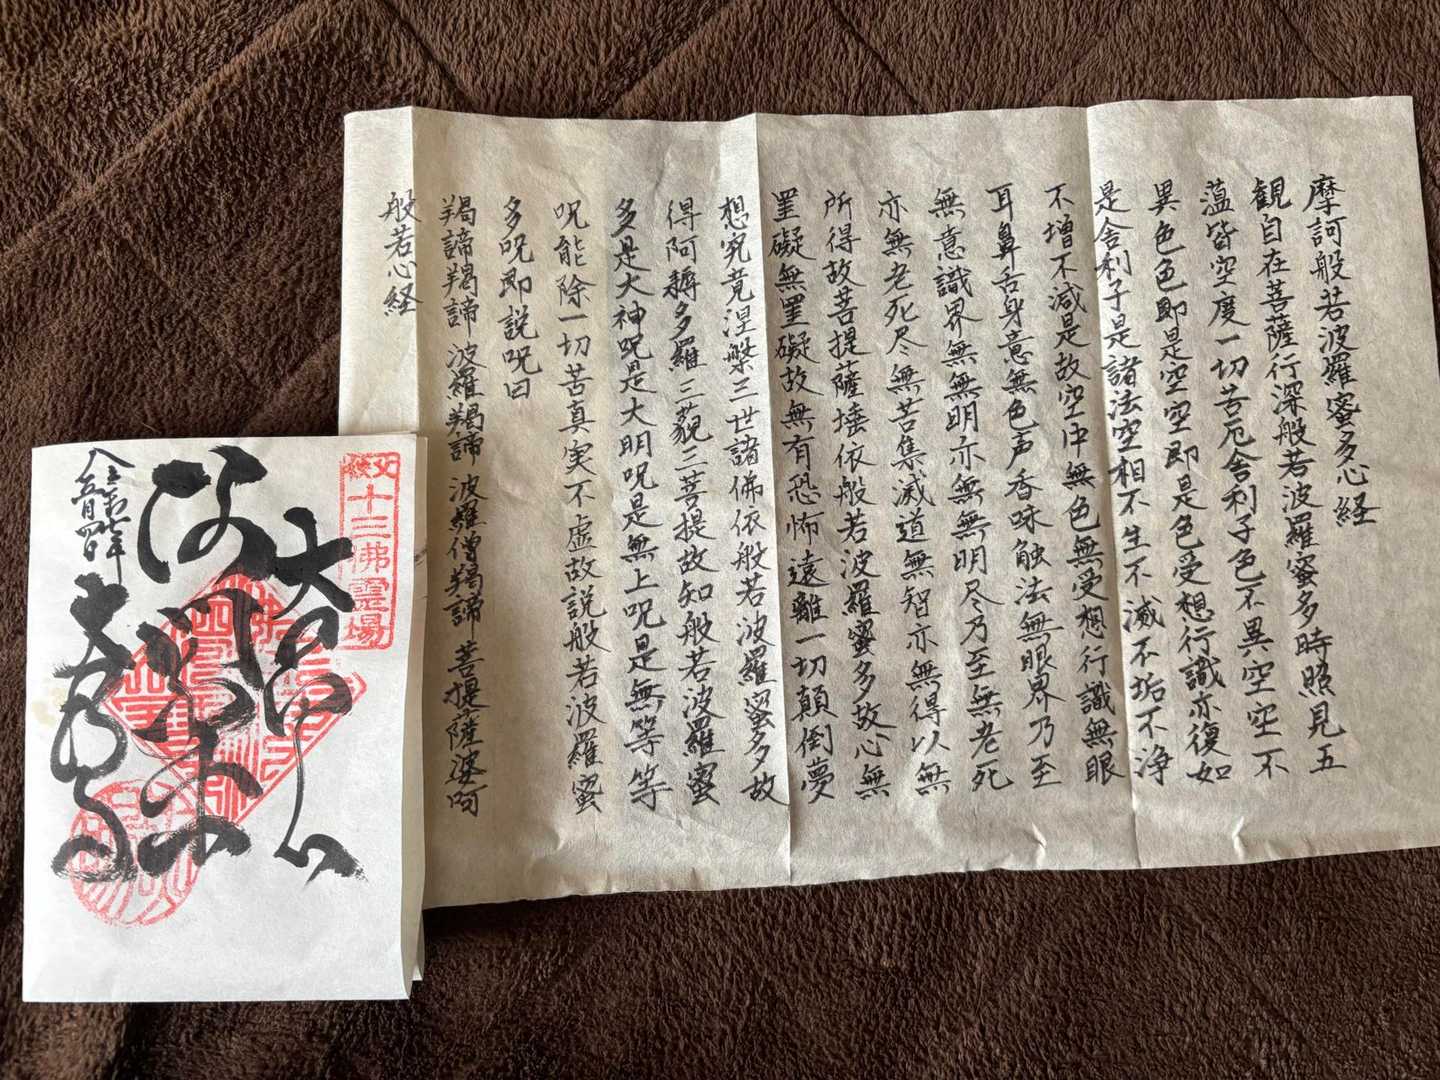 摩訶般若波羅蜜多心経
観自在菩薩行深般若波羅蜜多時照見五
薀皆空度一切苦厄舎利子色不異空空不
異色色即是空空即是色受想行識亦復如
是舎利子是諸法空相不生不滅不垢不浄
不増不減是故空中無色無受想行識無眼
耳鼻舌身意無色声香味触法無眼界乃至
無意識界無無明亦無無明尽乃至無老死
亦無老死尽無苦集滅道無智亦無得以無
所得故菩提薩埵依般若波羅蜜多故心無
罣礙無罣礙故無有恐怖遠離一切顛倒夢
想究竟涅槃三世諸佛依般若波羅蜜多故
得阿耨多羅三藐三菩提故知般若波羅蜜
多是大神呪是大明呪是無上呪是無等等
呪能除一切苦真実不虚故説般若波羅蜜
多呪即説呪曰
羯諦羯諦 波羅羯諦 波羅僧羯諦 菩提薩婆呵
般若心経
秩父
十三佛霊場
令和七年
五月四日